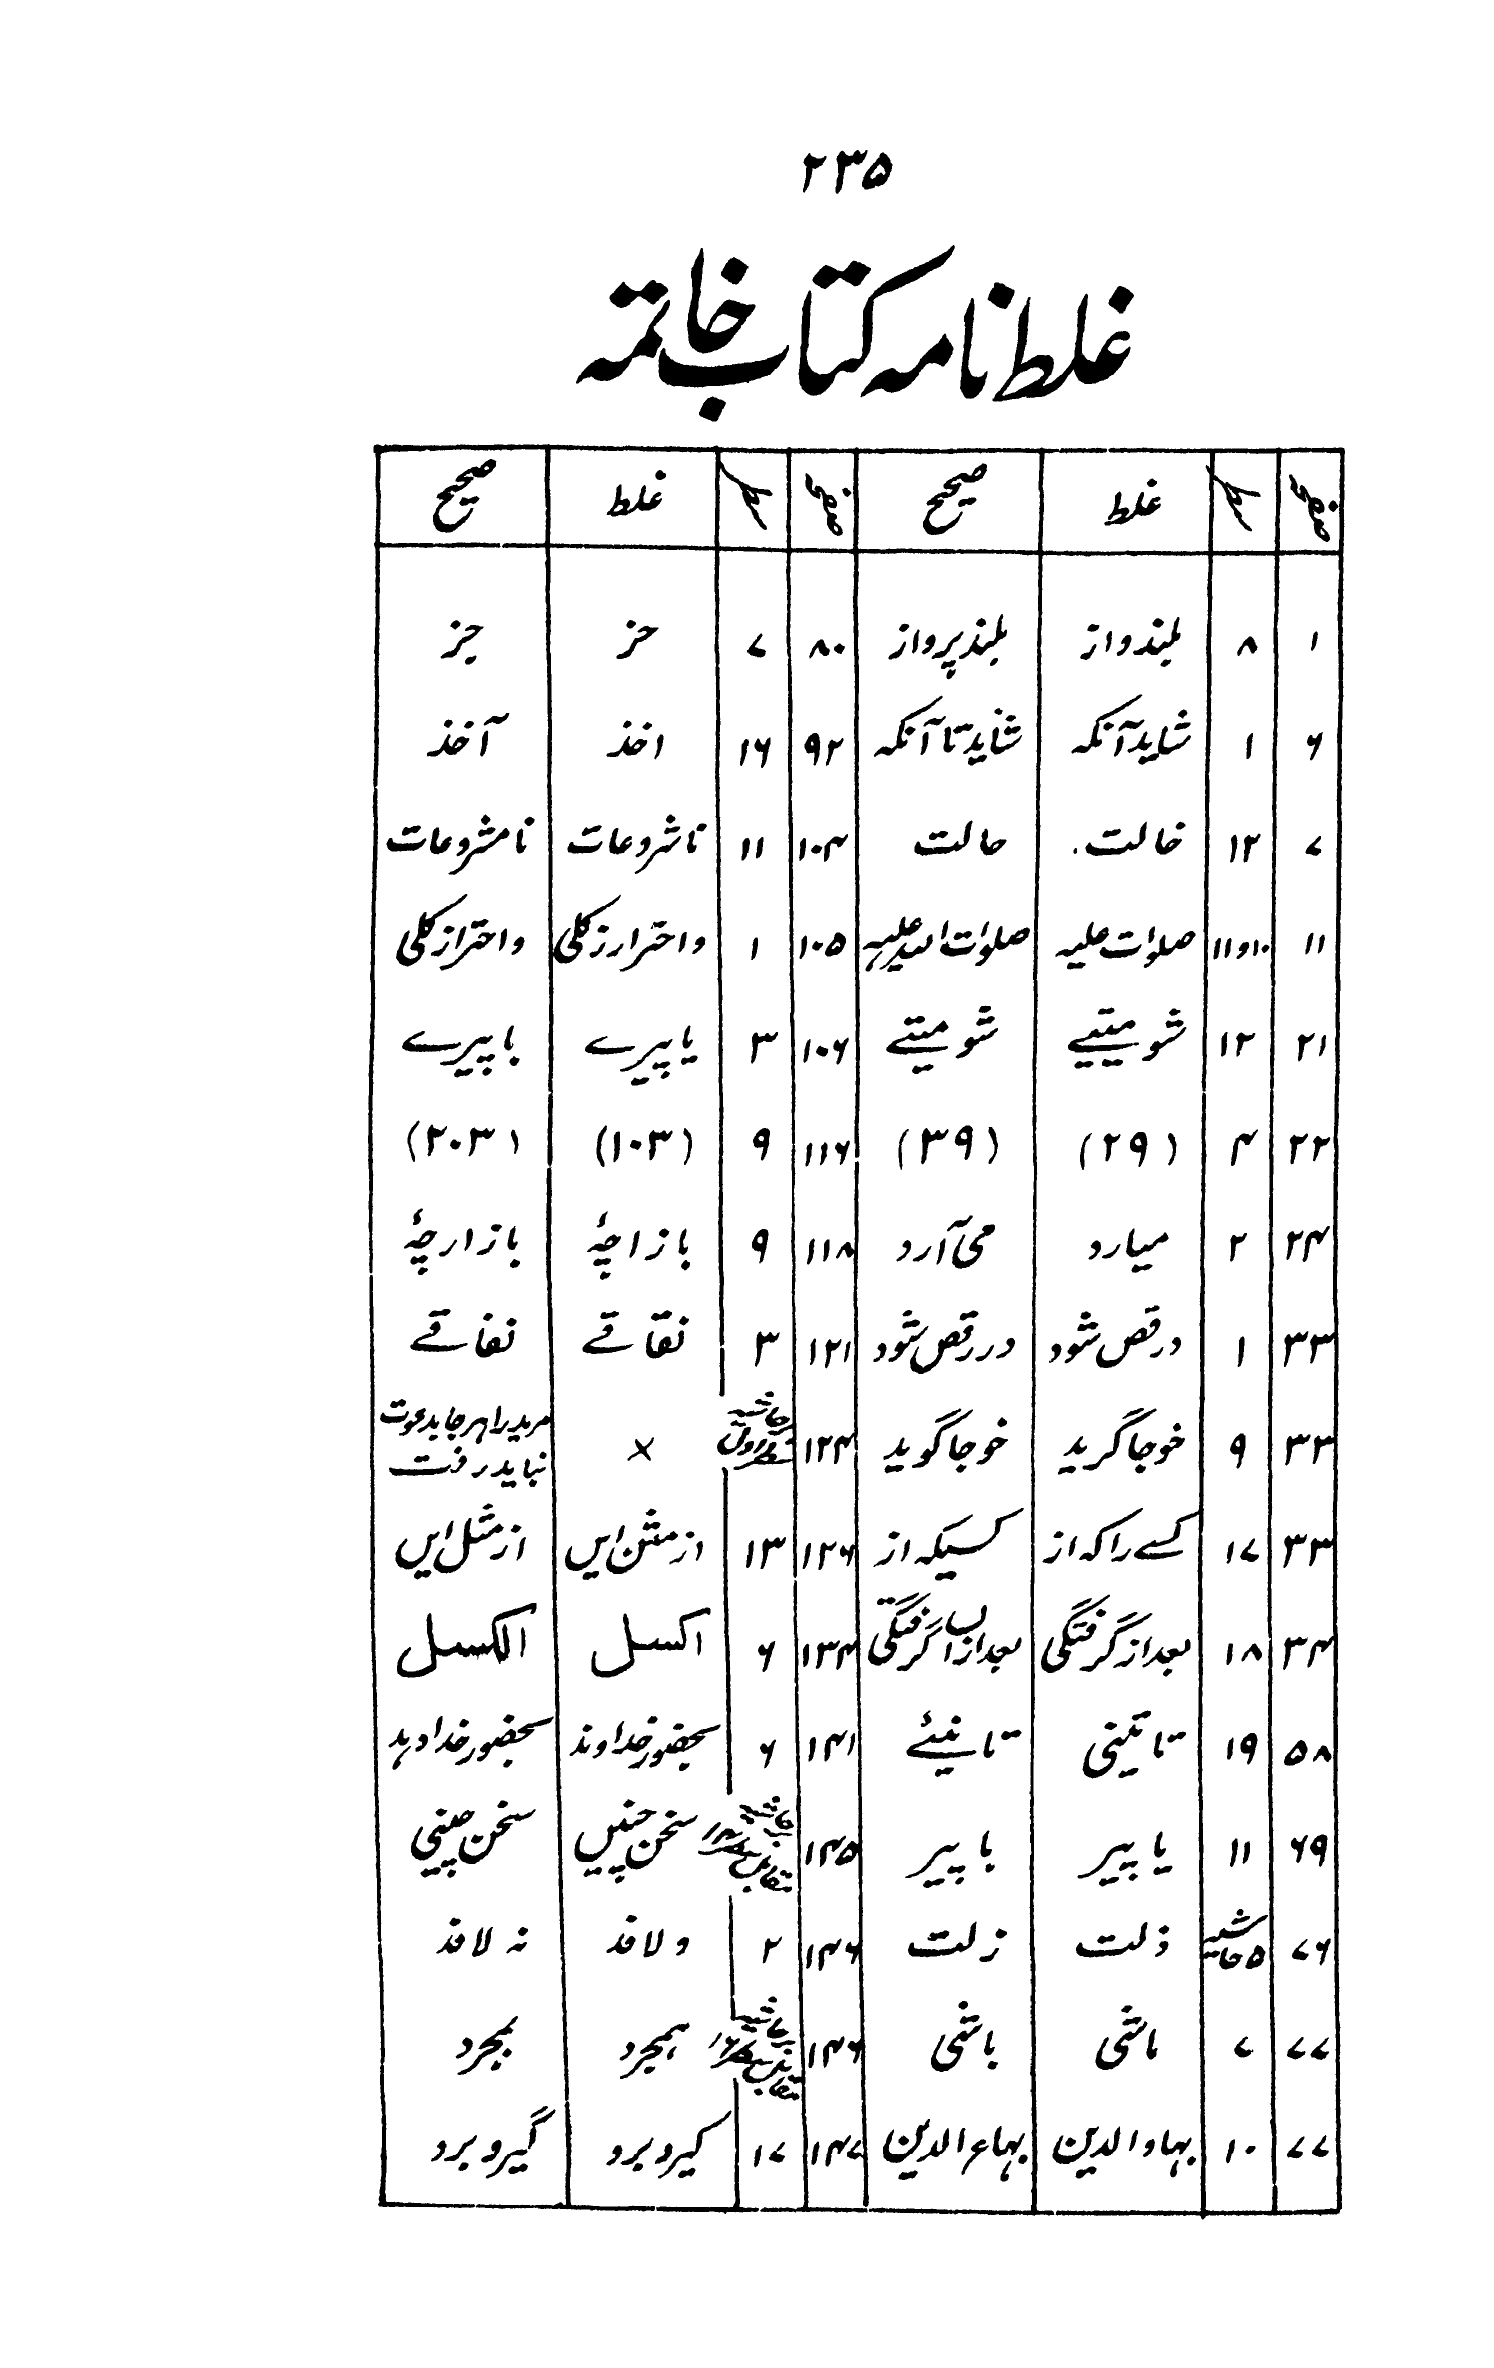 ۲۳۵
غلط نامہ کتاب خاتمہ
صفحہ سطر غلط صحیح صفحہ سطر غلط صحیح
۱ ۸ بلند واز بلند پرواز ۸۰ ۷ حز چز
۶ ۱ شاید آنکہ شاید تا آنکہ ۹۲ ۱۶ اخذ آخذ
۷ ۱۲ خالت حالت ۱۰۴ ۱۱ ناشروعات نامشروعات
۱۱ ۱۰و۱۱ صلوات علیہ صلوات اللہ علیہ ۱۰۵ ۱ و احترارز کلی و احتراز کلی
۲۱ ۱۲ شو میتیے شو میتے ۱۰۶ ۳ یا پیرے با پیرے
۲۲ ۴ (۲۹) (۳۹) ۱۱۶ ۹ (۱۰۳) (۲۰۳)
۲۴ ۲ میارد می آرد ۱۱۸ ۹ بازاچۂ بازارچۂ
۳۳ ۱ درقص شود در رقص شود ۱۲۱ ۳ نقاقے نفاقے
۳۳ ۹ خوجا گرید خوجا گوید ۱۲۴ حاشیہ سطر اول × مرید را ہر جا بدعوت نباید رفت
۳۳ ۱۷ کسے را کہ از کسیکہ از ۱۲۶ ۱۳ از مثن ایں از مثل ایں
۳۴ ۱۸ بعد از گرفتگی بعد ازاں گرفتگی ۱۳۴ ۶ اکسل الکسل
۵۸ ۱۹ تا نیئے ۱۴۱ ۶ بحضور خداوند بحضور خدا دہد
۶۹ ۱۱ یا پیر با پیر ۱۴۵ بر حاشیہ مقابل سطر ۱۴ سخن چنیں سخن چینی
۷۶ ۵ حاشیہ ذلت زلت ۱۴۶ ۲ و لافذ نہ لافذ
۷۷ ۷ ماشی باشی ۱۴۶ بر حاشیہ مقابل سطر ۱۶ ہمجرد بمجرد
۷۷ ۱۰ بہاو الدین بہاء الدین ۱۴۷ ۱۷ کیرو برو گیرو برد